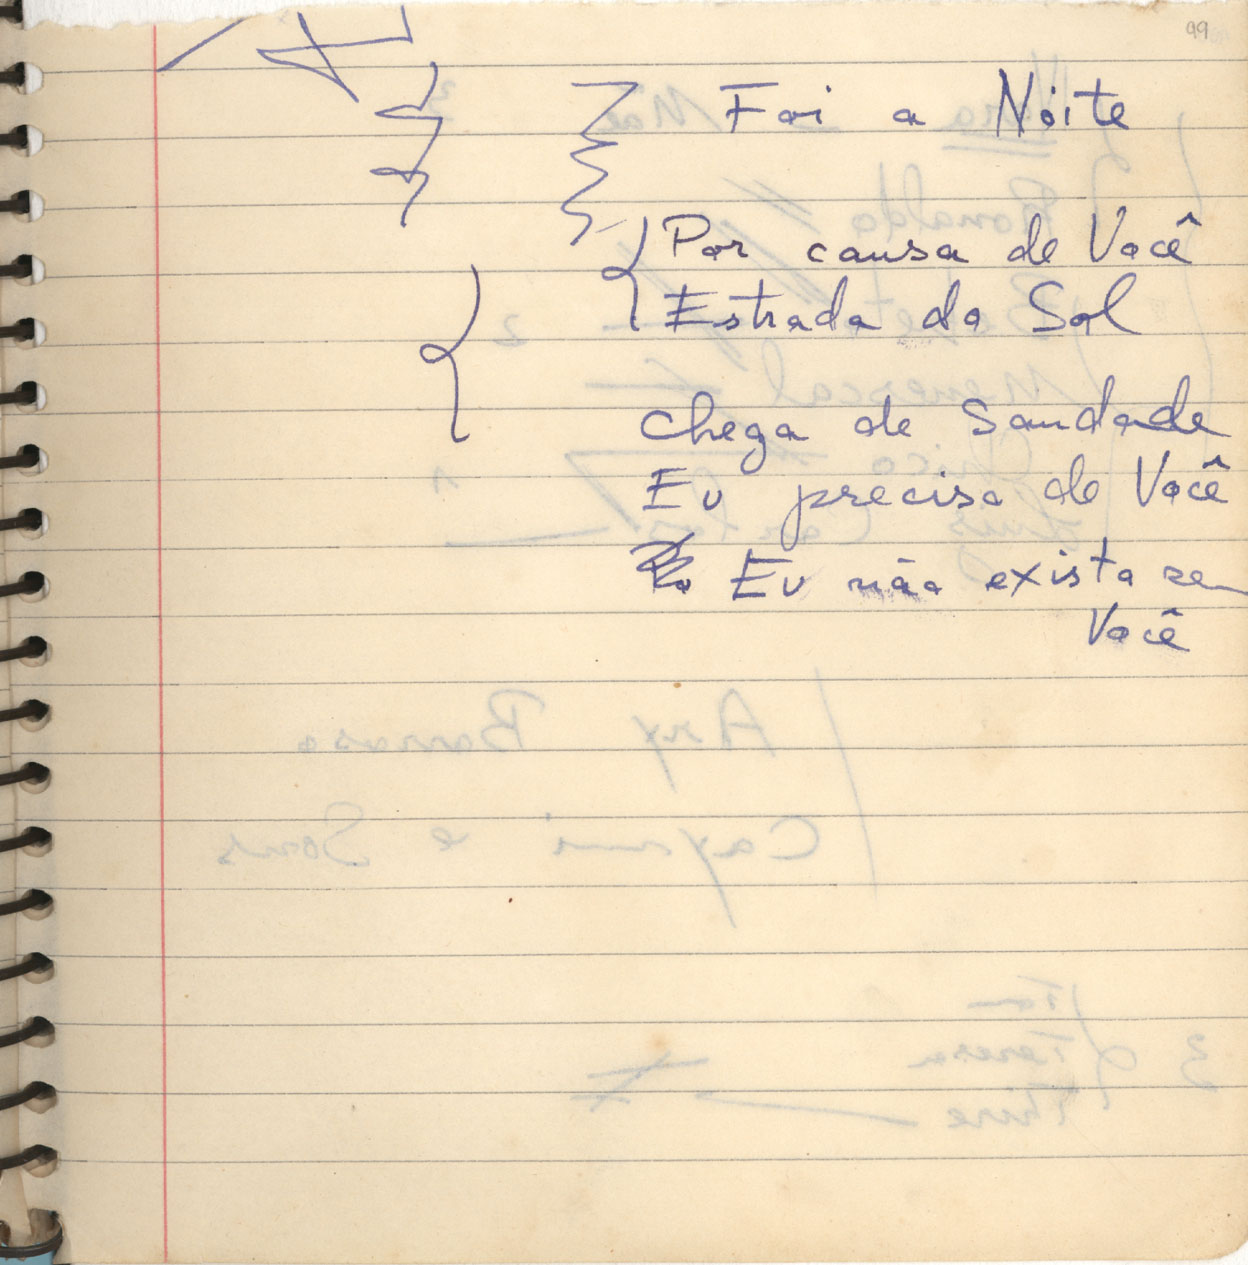 99
Foi a Noite
Por causa de Você
Estrada do Sol
Chega de Saudade
Eu preciso de Você
Eu não existo sem
Você